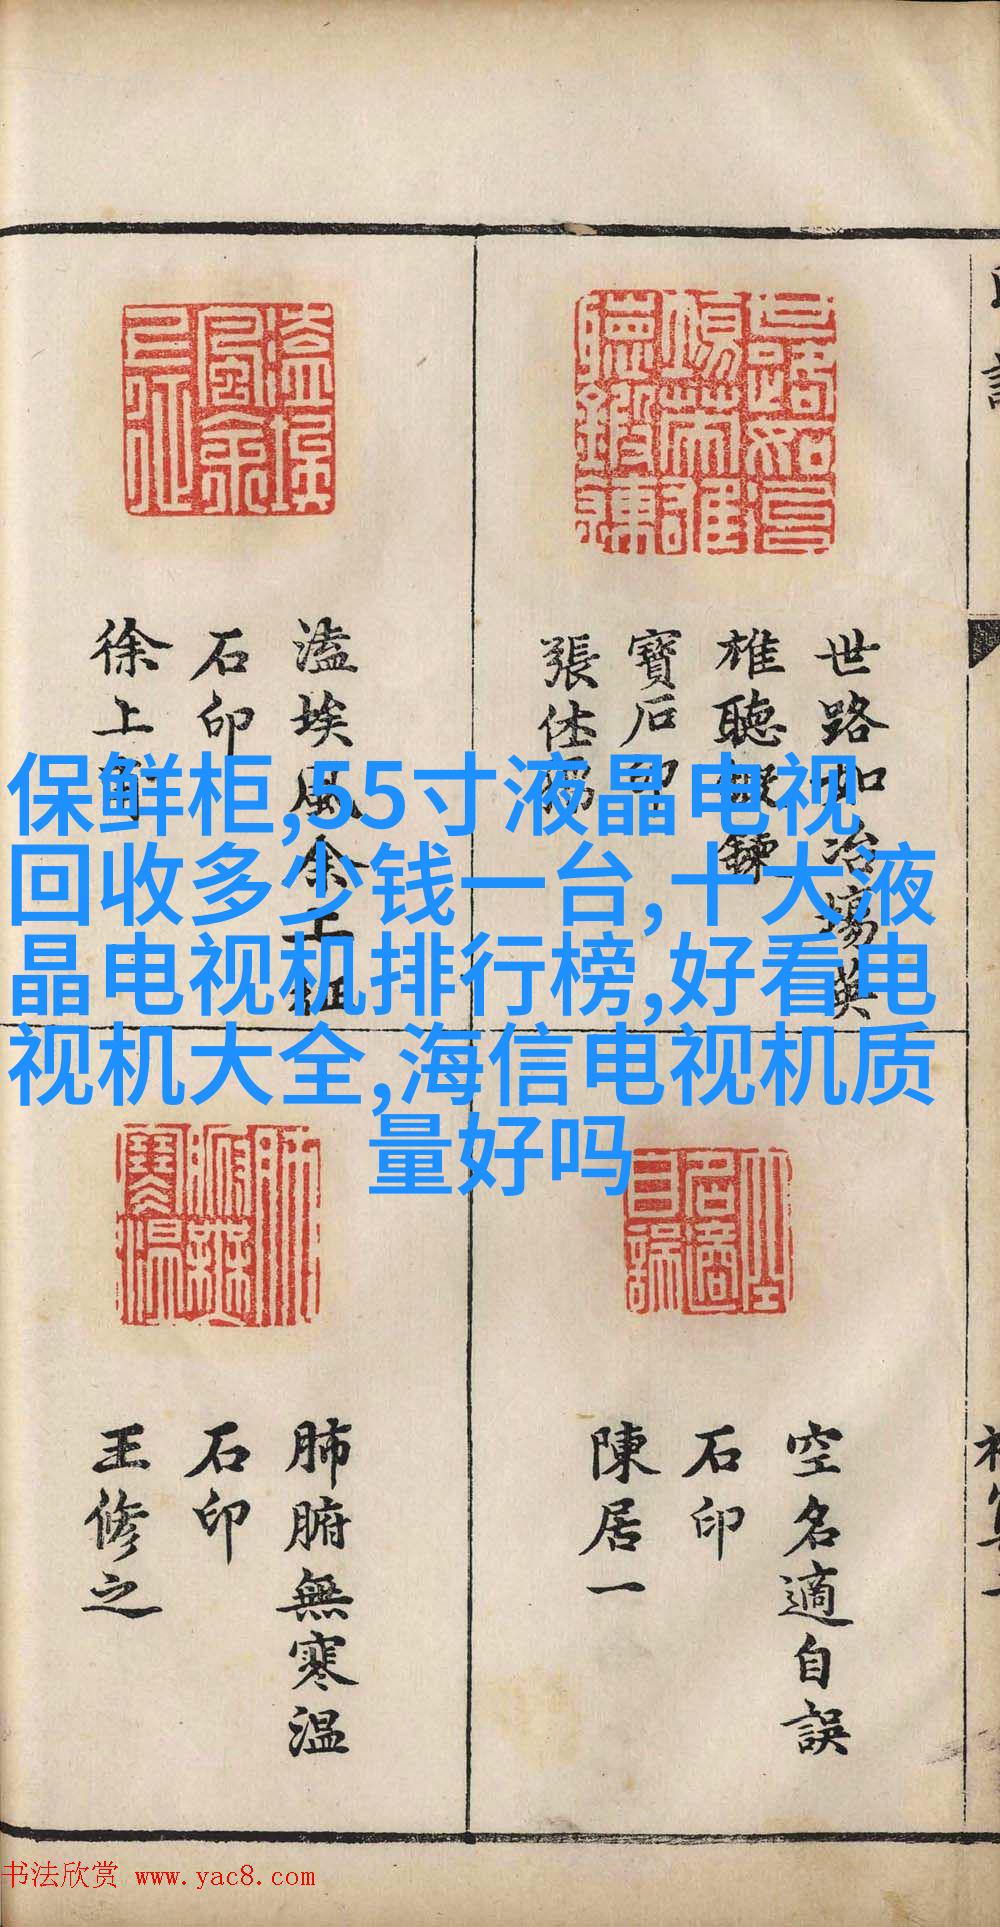 保鲜柜,55寸液晶电视
回收多少钱一台,十大液
晶电视机排行榜,好看电
视机大全,海信电视机质
量好吗
世路如冶場英
雄聽鍛鍊
寶石印
溘埃風余上征
石印
空名適自誤
石印
陳居一
肺腑無寒溫
石印
王修之
书法欣赏 www.yac8.com